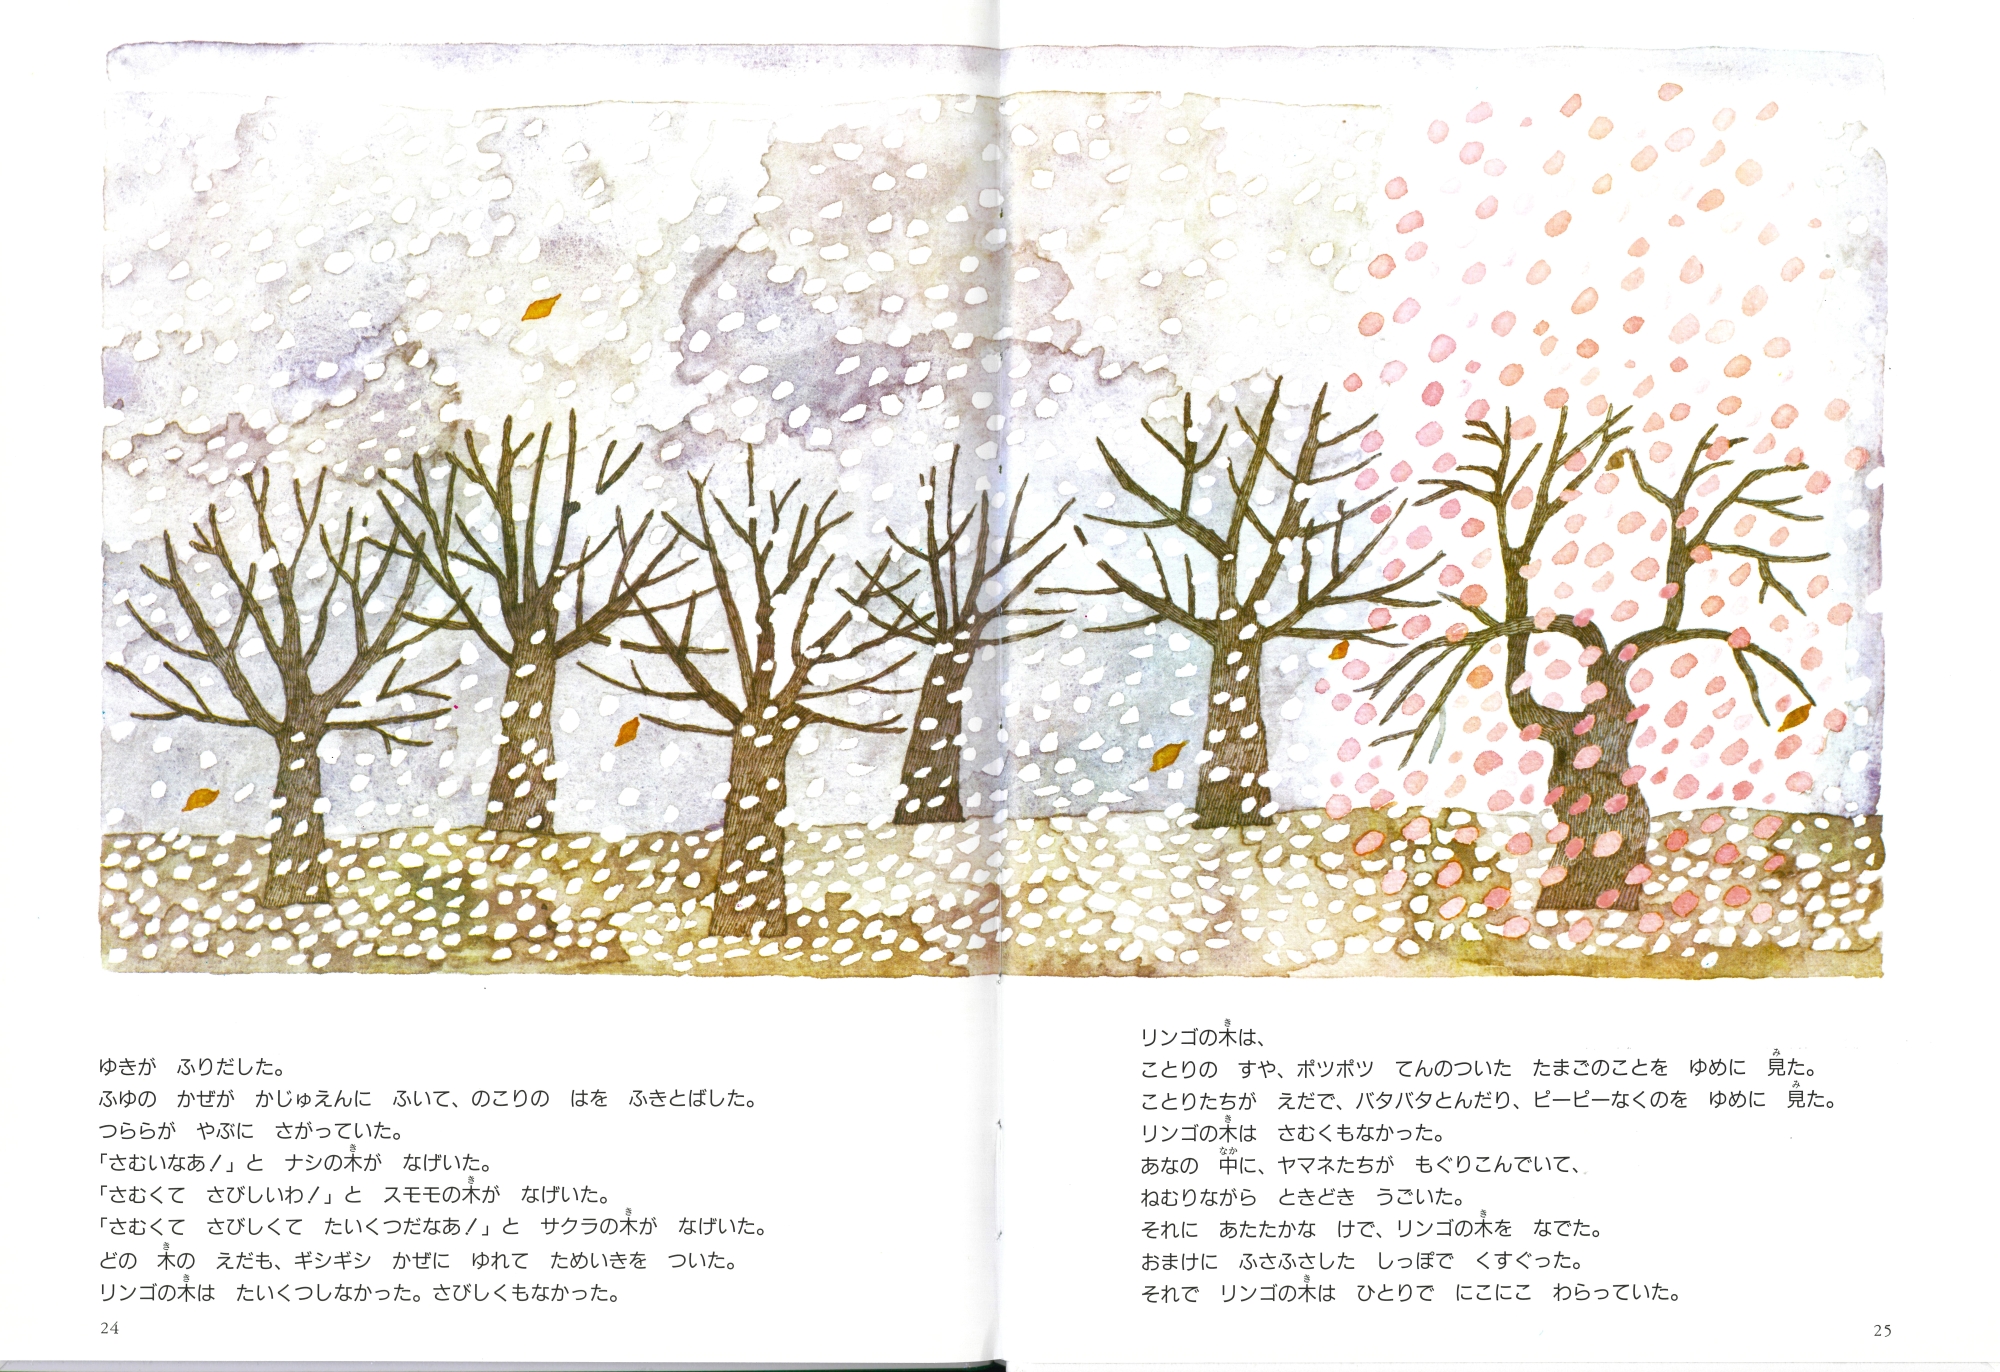 ゆきが　ふりだした。
ふゆの　かぜが　かじゅえんに　ふいて、のこりの　はを　ふきとばした。
つららが　やぶに　さがっていた。
「さむいなあ！」と　ナシの木が　なげいた。
「さむくて　さびしいわ！」と　スモモの木が　なげいた。
「さむくて　さびしくて　たいくつだなあ！」と　サクラの木が　なげいた。
どの　木の　えだも、ギシギシ　かぜに　ゆれて　ためいきを　ついた。
リンゴの木は　たいくつしなかった。さびしくもなかった。
24
リンゴの木は、
ことりの　すや、ポツポツ　てんのついた　たまごのことを　ゆめに　見た。
ことりたちが　えだで、バタバタとんだり、ピーピーなくのを　ゆめに　見た。
リンゴの木は　さむくもなかった。
あなの　中に、ヤマネたちが　もぐりこんでいて、
ねむりながら　ときどき　うごいた。
それに　あたたかな　けで、リンゴの木を　なでた。
おまけに　ふさふさした　しっぽで　くすぐった。
それで　リンゴの木は　ひとりで　にこにこ　わらっていた。
25